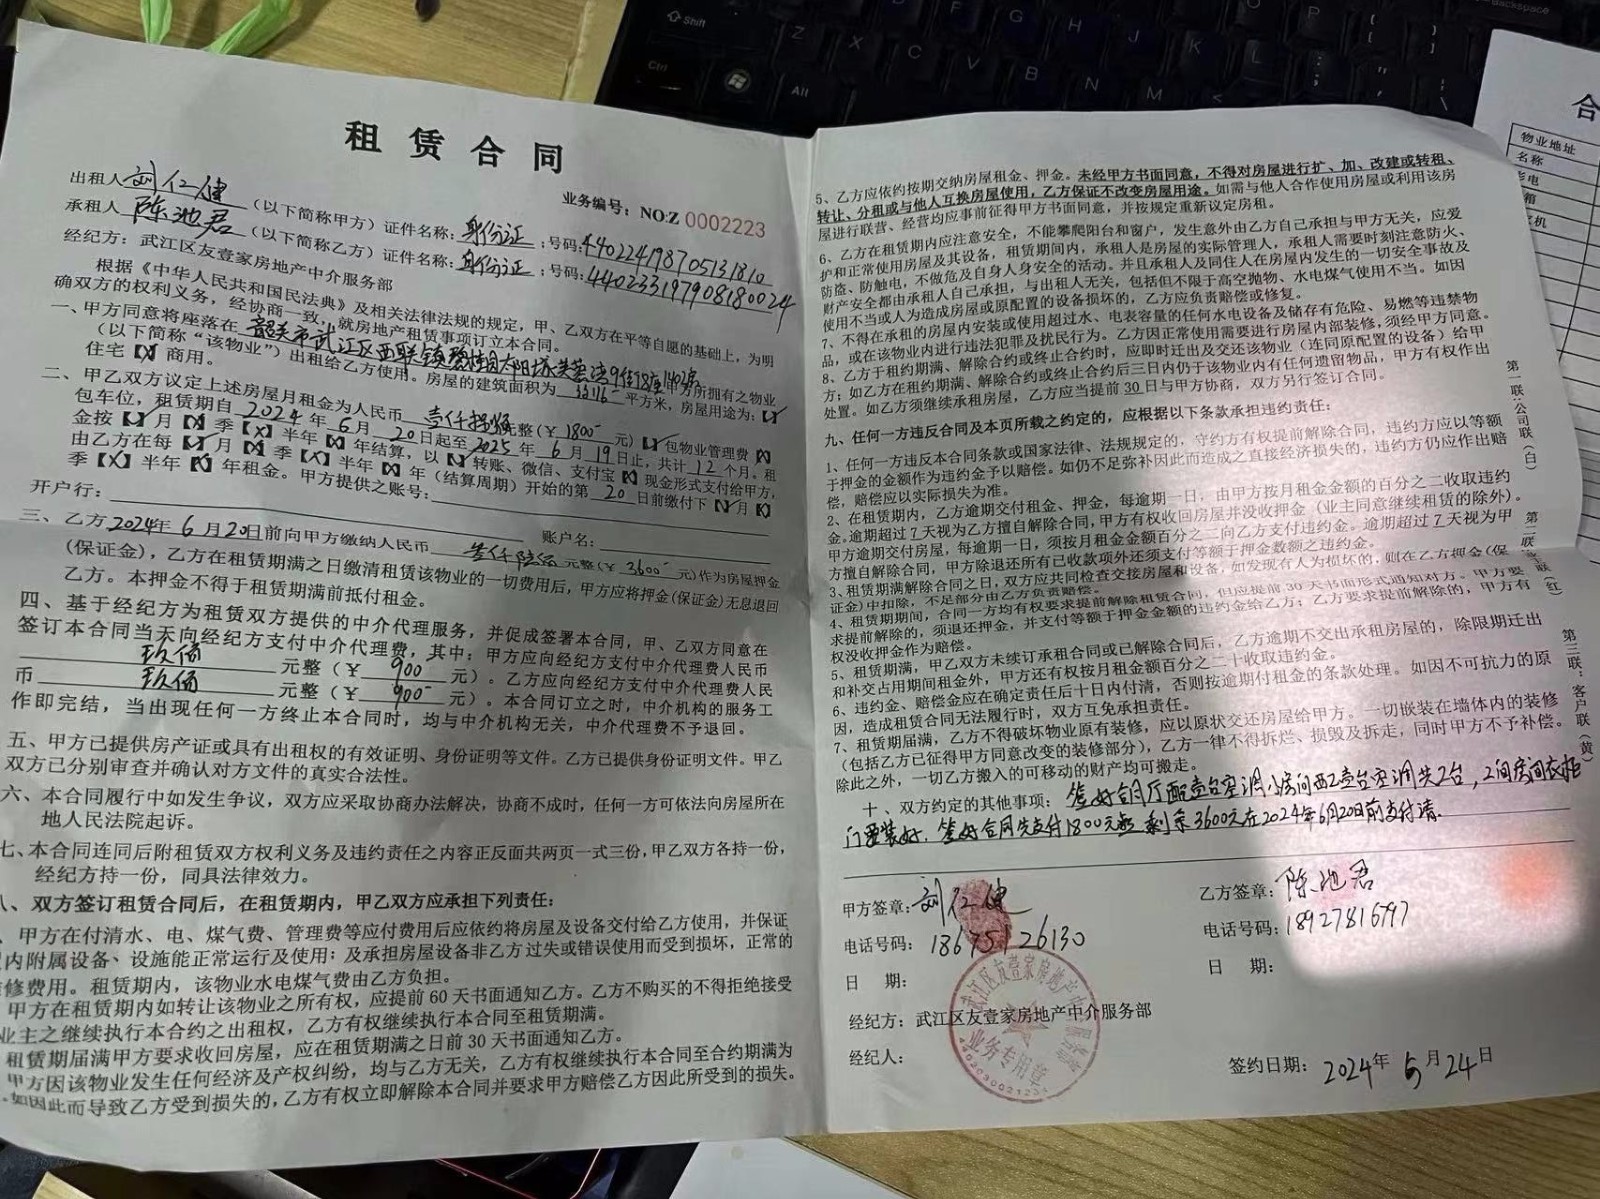 租赁合同
业务编号：NO:Z 0002223
出租人 刘仁健 （以下简称甲方）证件名称：身份证；号码：440224198705131810
承租人 陈池君 （以下简称乙方）证件名称：身份证；号码：440233197908180024
经纪方：武江区友壹家房地产中介服务部
根据《中华人民共和国民法典》及相关法律法规的规定，甲、乙双方在平等自愿的基础上，为明
确双方的权利义务，经协商一致，就房地产租赁事项订立本合同。
一、甲方同意将座落在 韶关市武江区西联镇碧桂园太阳城芙蓉湾9街18座 甲方所拥有之物业
（以下简称“该物业”）出租给乙方使用。房屋的建筑面积为 平方米，房屋用途为：【✓】
住宅【X】商用。
二、甲乙双方议定上述房屋月租金为人民币 壹仟捌佰 元整（¥ 1800 元）【✓】包物业管理费【X】
包车位，租赁期自 2024 年 6 月 20 日起至 2025 年 6 月 19 日止，共计 12 个月。租
金按【✓】月【X】季【X】半年【X】年结算，以【✓】转账、微信、支付宝【X】现金形式支付给甲方，
由乙方在每【✓】月【X】季【X】半年【X】年（结算周期）开始的第 20 日前缴付下【✓】月【X】
季【X】半年【X】年租金。甲方提供之账号：
开户行： 账户名：
三、乙方 2024年 6 月 20日前向甲方缴纳人民币 叁仟陆佰 元整（¥ 3600 元）作为房屋押金
（保证金），乙方在租赁期满之日缴清租赁该物业的一切费用后，甲方应将押金(保证金)无息退回
乙方。本押金不得于租赁期满前抵付租金。
四、基于经纪方为租赁双方提供的中介代理服务，并促成签署本合同，甲、乙双方同意在
签订本合同当天向经纪方支付中介代理费，其中：甲方应向经纪方支付中介代理费人民币
玖佰 元整（¥ 900 元）。乙方应向经纪方支付中介代理费人民
币 玖佰 元整（¥ 900 元）。本合同订立之时，中介机构的服务工
作即完结，当出现任何一方终止本合同时，均与中介机构无关，中介代理费不予退回。
五、甲方已提供房产证或具有出租权的有效证明、身份证明等文件。乙方已提供身份证明文件。甲乙
双方已分别审查并确认对方文件的真实合法性。
六、本合同履行中如发生争议，双方应采取协商办法解决，协商不成时，任何一方可依法向房屋所在
地人民法院起诉。
七、本合同连同后附租赁双方权利义务及违约责任之内容正反面共两页一式三份，甲乙双方各持一份，
经纪方持一份，同具法律效力。
八、双方签订租赁合同后，在租赁期内，甲乙双方应承担下列责任：
甲方在付清水、电、煤气费、管理费等应付费用后应依约将房屋及设备交付给乙方使用，并保证
内附属设备、设施能正常运行及使用；及承担房屋设备非乙方过失或错误使用而受到损坏，正常的
修费用。租赁期内，该物业水电煤气费由乙方负担。
甲方在租赁期内如转让该物业之所有权，应提前 60 天书面通知乙方。乙方不购买的不得拒绝接受
业主之继续执行本合约之出租权，乙方有权继续执行本合同至租赁期满。
租赁期届满甲方要求收回房屋，应在租赁期满之日前 30 天书面通知乙方。
甲方因该物业发生任何经济及产权纠纷，均与乙方无关，乙方有权继续执行本合同至合约期满为
如因此而导致乙方受到损失的，乙方有权立即解除本合同并要求甲方赔偿乙方因此所受到的损失。
5、乙方应依约按期交纳房屋租金、押金。未经甲方书面同意，不得对房屋进行扩、加、改建或转租、
转让、分租或与他人互换房屋使用，乙方保证不改变房屋用途。如需与他人合作使用房屋或利用该房
屋进行联营、经营均应事前征得甲方书面同意，并按规定重新议定房租。
6、乙方在租赁期内应注意安全，不能攀爬阳台和窗户，发生意外由乙方自己承担与甲方无关，应爱
护和正常使用房屋及其设备，租赁期间内，承租人是房屋的实际管理人，承租人需要时刻注意防火、
防盗、防触电，不做危及自身人身安全的活动。并且承租人及同住人在房屋内发生的一切安全事故及
财产安全都由承租人自己承担，与出租人无关，包括但不限于高空抛物、水电煤气使用不当。如因
使用不当或人为造成房屋或原配置的设备损坏的，乙方应负责赔偿或修复。
7、不得在承租的房屋内安装或使用超过水、电表容量的任何水电设备及储存有危险、易燃等违禁物
品，或在该物业内进行违法犯罪及扰民行为。乙方因正常使用需要进行房屋内部装修，须经甲方同意。
8、乙方于租约期满、解除合约或终止合约时，应即时迁出及交还该物业（连同原配置的设备）给甲
方；如乙方在租约期满、解除合约或终止合约后三日内仍于该物业内有任何遗留物品，甲方有权作出
处置。如乙方须继续承租房屋，乙方应当提前 30 日与甲方协商，双方另行签订合同。
九、任何一方违反合同及本页所载之约定的，应根据以下条款承担违约责任：
1、任何一方违反本合同条款或国家法律、法规规定的，守约方有权提前解除合同，违约方应以等额
于押金的金额作为违约金予以赔偿。如仍不足弥补因此而造成之直接经济损失的，违约方仍应作出赔
偿，赔偿应以实际损失为准。
2、在租赁期内，乙方逾期交付租金、押金，每逾期一日，由甲方按月租金金额的百分之二收取违约
金。逾期超过 7 天视为乙方擅自解除合同，甲方有权收回房屋并没收押金（业主同意继续租赁的除外）。
甲方逾期交付房屋，每逾期一日，须按月租金金额百分之二向乙方支付违约金。逾期超过 7 天视为甲
方擅自解除合同，甲方除退还所有已收款项外还须支付等额于押金数额之违约金。
3、租赁期满解除合同之日，双方应共同检查交接房屋和设备，如发现有人为损坏的，则在乙方押金(保
证金)中扣除，不足部分由乙方负责赔偿。
4、租赁期期间，合同一方均有权要求提前解除租赁合同，但应提前 30 天书面形式通知对方。甲方要
求提前解除的，须退还押金，并支付等额于押金金额的违约金给乙方；乙方要求提前解除的，甲方有
权没收押金作为赔偿。
5、租赁期满，甲乙双方未续订承租合同或已解除合同后，乙方逾期不交出承租房屋的，除限期迁出
和补交占用期间租金外，甲方还有权按月租金额百分之二十收取违约金。
6、违约金、赔偿金应在确定责任后十日内付清，否则按逾期付租金的条款处理。如因不可抗力的原
因，造成租赁合同无法履行时，双方互免承担责任。
7、租赁期届满，乙方不得破坏物业原有装修，应以原状交还房屋给甲方。一切嵌装在墙体内的装修
（包括乙方已征得甲方同意改变的装修部分），乙方一律不得拆烂、损毁及拆走，同时甲方不予补偿。
除此之外，一切乙方搬入的可移动的财产均可搬走。
十、双方约定的其他事项：签好合同厅配壹台空调，小房间西配壹台空调共2台，2间房间衣柜
门要装好。签好合同先支付1800元 剩余3600元在2024年6月20日前支付清。
甲方签章：刘仁健
电话号码：18675126130
日 期：
经纪方：武江区友壹家房地产中介服务部
经纪人：
乙方签章：陈池君
电话号码：18927816797
日 期：
签约日期：2024年 5月 24日
武江区友壹家房地产中介服务部
业务专用章
第一联：公司联（白）
第三联：客户联（黄）
物业地址
名称
Shift
Ctrl
Alt
Z
X
C
V
B
N
M
F
G
H
J
K
L
O
P
Backspace